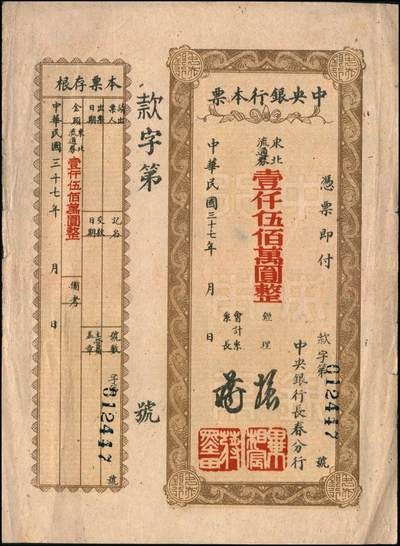 中央銀行本票
憑票即付
東北
流通券
壹仟伍佰萬圓整
中華民國三十七年　月　日
經理
會計系
系長
中央銀行長春分行
款字第012447號
款字第　號
本票存根
出票人
出票日期
記名
交款日期
號數
字第012447號
金額
東北
流通券
壹仟伍佰萬圓整
備考
主管員
蓋章
中華民國三十七年　月　日